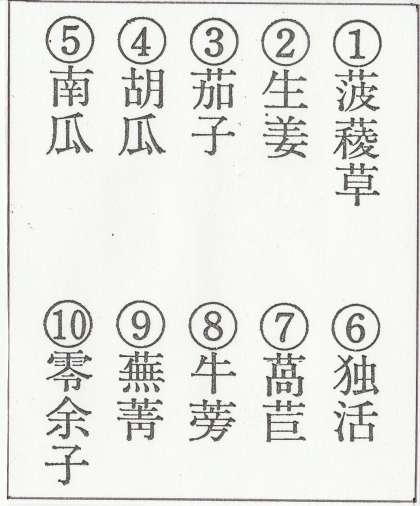 ①菠薐草
②生姜
③茄子
④胡瓜
⑤南瓜
⑥独活
⑦萵苣
⑧牛蒡
⑨蕪菁
⑩零余子